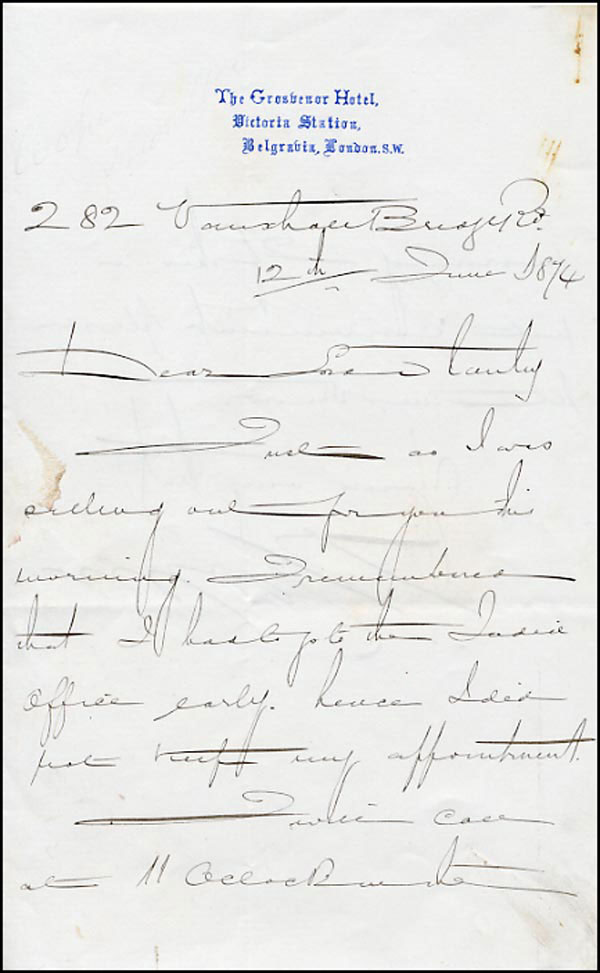 The Grosvenor Hotel,
Victoria Station,
Belgravia, London. S.W.
282 Vauxhall Bridge Rd.
12th June 1874
Dear Stanley
Just as I was
setting out for you this
morning. I remembered
that I had to go to the India
Office early. hence I did
not keep my appointment.
I will call
at 11 OClock